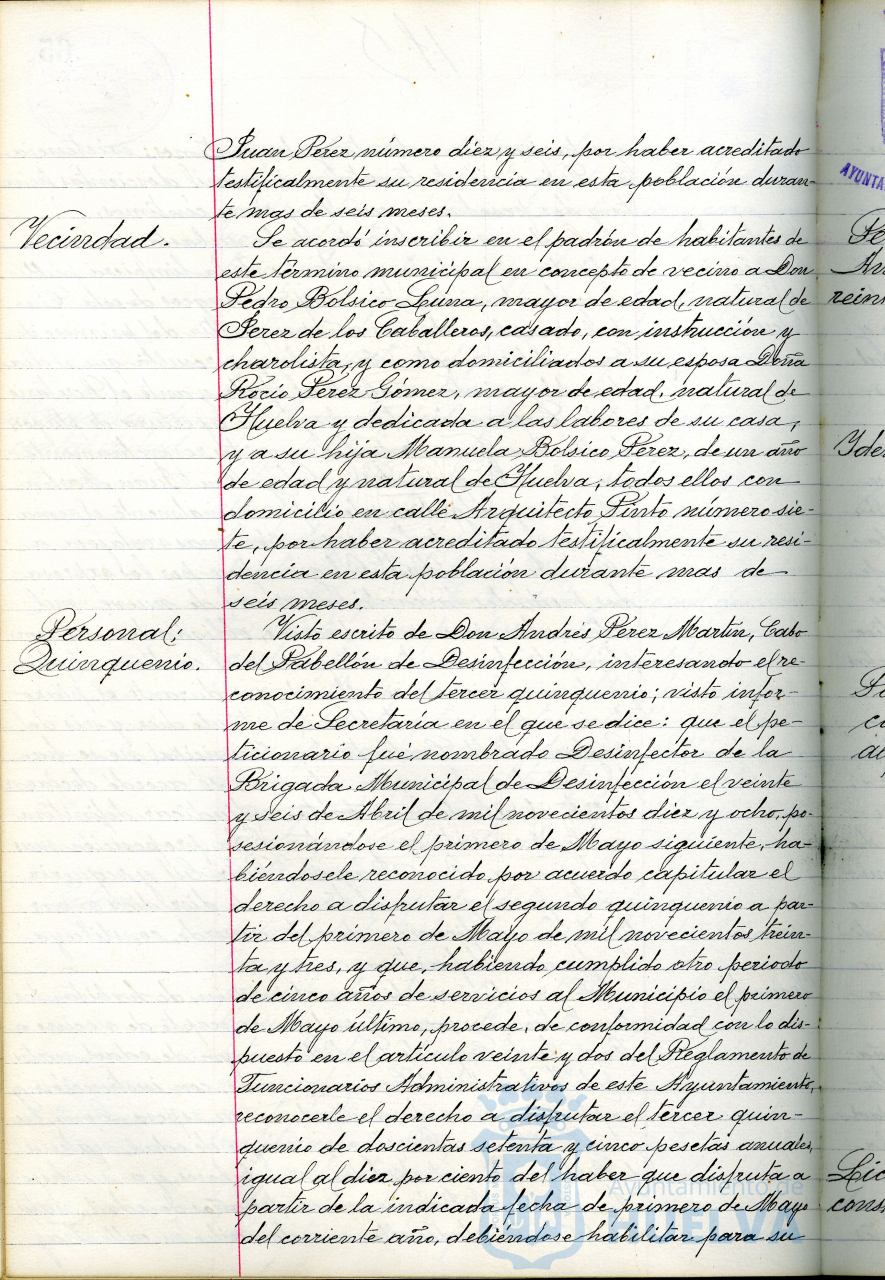 Juan Perez número diez y seis, por haber acreditado
testificalmente su residencia en esta población duran-
te mas de seis meses.
Vecindad.
Se acordó inscribir en el padrón de habitantes de
este término municipal en concepto de vecino a Don
Pedro Bolsico Luna, mayor de edad, natural de
Jerez de los Caballeros, casado, con instrucción y
charolista, y como domiciliados a su esposa Doña
Rocio Perez Gómez, mayor de edad, natural de
Huelva y dedicada a las labores de su casa,
y a su hija Manuela Bolsico Perez, de un año
de edad y natural de Huelva, todos ellos con
domicilio en calle Arquitecto Pinto número sie-
te, por haber acreditado testificalmente su resi-
dencia en esta población durante mas de
seis meses.
Personal:
Quinquenio.
Visto escrito de Don Andrés Perez Martin, Cabo
del Pabellón de Desinfección, interesando el re-
conocimiento del tercer quinquenio; visto infor-
me de Secretaría en el que se dice: que el pe-
ticionario fué nombrado Desinfector de la
Brigada Municipal de Desinfección el veinte
y seis de Abril de mil novecientos diez y ocho, po-
sesionándose el primero de Mayo siguiente, ha-
biéndosele reconocido por acuerdo capitular el
derecho a disfrutar el segundo quinquenio a par-
tir del primero de Mayo de mil novecientos trein-
ta y tres, y que, habiendo cumplido otro periodo
de cinco años de servicios al Municipio el primero
de Mayo último, procede, de conformidad con lo dis-
puesto en el artículo veinte y dos del Reglamento de
Funcionarios Administrativos de este Ayuntamiento,
reconocerle el derecho a disfrutar el tercer quin-
quenio de doscientas setenta y cinco pesetas anuales,
igual al diez por ciento del haber que disfruta a
partir de la indicada fecha de primero de Mayo
del corriente año, debiéndose habilitar para su
Ayuntamiento de
HUELVA
AYUNTA
reins
Yde
Lic
cons